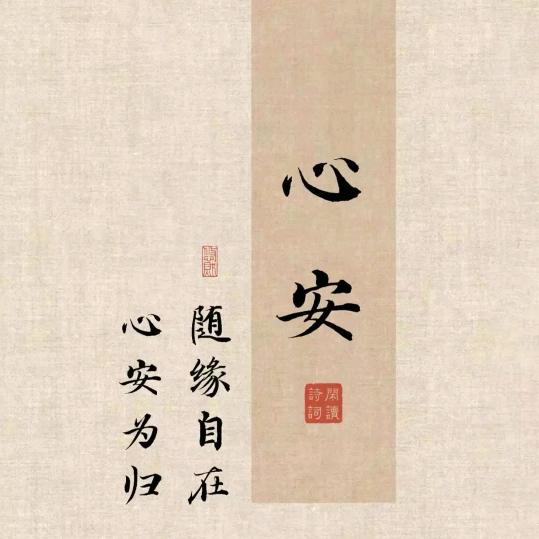 心安
閑讀
詩詞
随缘自在
心安为归